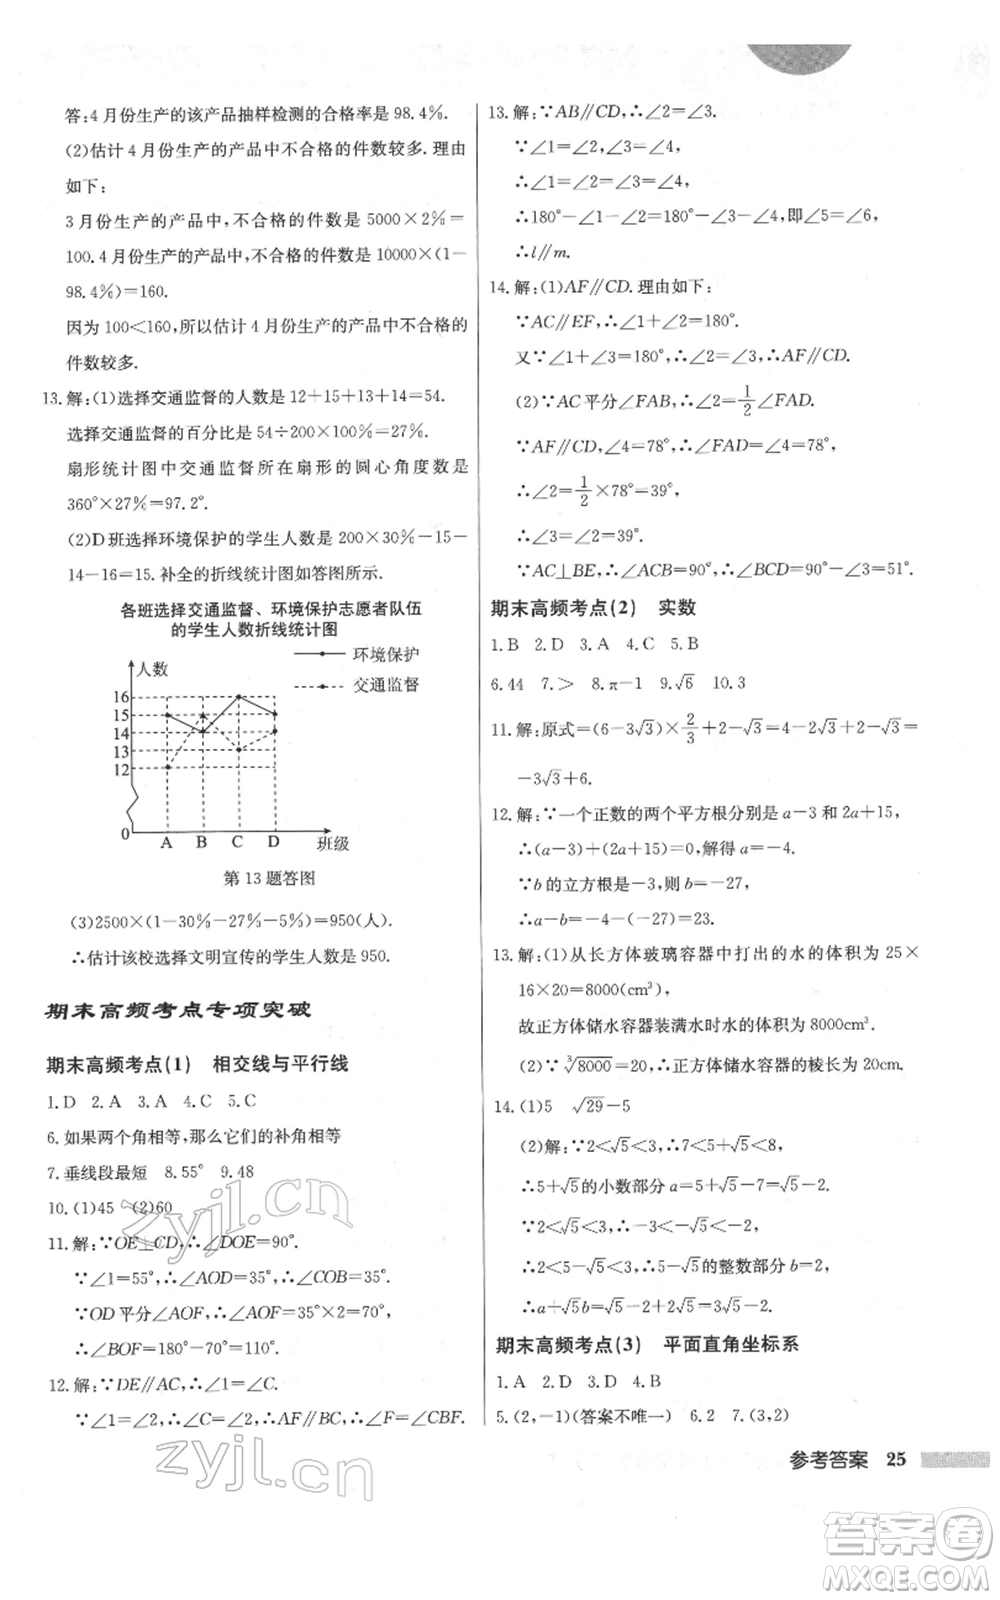 答:4月份生产的该产品抽样检测的合格率是98.4%.
(2)估计4月份生产的产品中不合格的件数较多.理由
如下:
3月份生产的产品中,不合格的件数是5000×2%=
100.4月份生产的产品中,不合格的件数是10000×(1-
98.4%)=160.
因为100<160,所以估计4月份生产的产品中不合格的
件数较多.
13.解:(1)选择交通监督的人数是12+15+13+14=54.
选择交通监督的百分比是54÷200×100%=27%.
扇形统计图中交通监督所在扇形的圆心角度数是
360°×27%=97.2°.
(2)D班选择环境保护的学生人数是200×30%-15-
14-16=15.补全的折线统计图如答图所示.
各班选择交通监督、环境保护志愿者队伍
的学生人数折线统计图
环境保护
交通监督
人数
16
15
14
13
12
0
A B C D 班级
第13题答图
(3)2500×(1-30%-27%-5%)=950(人).
∴估计该校选择文明宣传的学生人数是950.
期末高频考点专项突破
期末高频考点(1) 相交线与平行线
1.D 2.A 3.A 4.C 5.C
6.如果两个角相等,那么它们的补角相等
7.垂线段最短 8.55° 9.48
10.(1)45 (2)60
11.解:∵OE⊥CD,∴∠DOE=90°.
∵∠1=55°,∴∠AOD=35°.
∵OD平分∠AOF,∴∠AOF=35°×2=70°,
∴∠BOF=180°-70°=110°.
12.解:∵DE∥AC,∴∠1=∠C.
∵∠1=∠2,∴∠C=∠2,∴AF∥BC,∴∠F=∠CBF.
13.解:∵AB∥CD,∴∠2=∠3.
∵∠1=∠2,∠3=∠4,
∴∠1=∠2=∠3=∠4,
∴180°-∠1-∠2=180°-∠3-∠4,即∠5=∠6,
∴l∥m.
14.解:(1)AF∥CD.理由如下:
∵AC∥EF,∴∠1+∠2=180°.
又∵∠1+∠3=180°,∴∠2=∠3,∴AF∥CD.
(2)∵AC平分∠FAB,∴∠2=1/2∠FAD.
∵AF∥CD,∠4=78°,∴∠FAD=∠4=78°,
∴∠2=1/2×78°=39°,
∴∠3=∠2=39°.
∵AC⊥BE,∴∠ACB=90°,∴∠BCD=90°-∠3=51°.
期末高频考点(2) 实数
1.B 2.D 3.A 4.C 5.B
6.44 7.> 8.π-1 9.√6 10.3
11.解:原式=(6-3√3)×2/3+2-√3=4-2√3+2-√3=
-3√3+6.
12.解:∵一个正数的两个平方根分别是a-3和2a+15,
∴(a-3)+(2a+15)=0,解得a=-4.
∵b的立方根是-3,则b=-27,
∴a-b=-4-(-27)=23.
13.解:(1)从长方体玻璃容器中打出的水的体积为25×
16×20=8000(cm³),
故正方体储水容器装满水时水的体积为8000cm³.
(2)∵∛8000=20,∴正方体储水容器的棱长为20cm.
14.(1)5 √29-5
(2)解:∵2<√5<3,∴7<5+√5<8,
∴5+√5的小数部分a=5+√5-7=√5-2.
∵2<√5<3,∴-3<-√5<-2,
∴2<5-√5<3,∴5-√5的整数部分b=2,
∴a+√5b=√5-2+2√5=3√5-2.
期末高频考点(3) 平面直角坐标系
1.A 2.D 3.D 4.B
5.(2,-1)(答案不唯一) 6.2 7.(3,2)
参考答案 25
zyjl.cn
zyjl.cn
答案圈
MXQE.COM